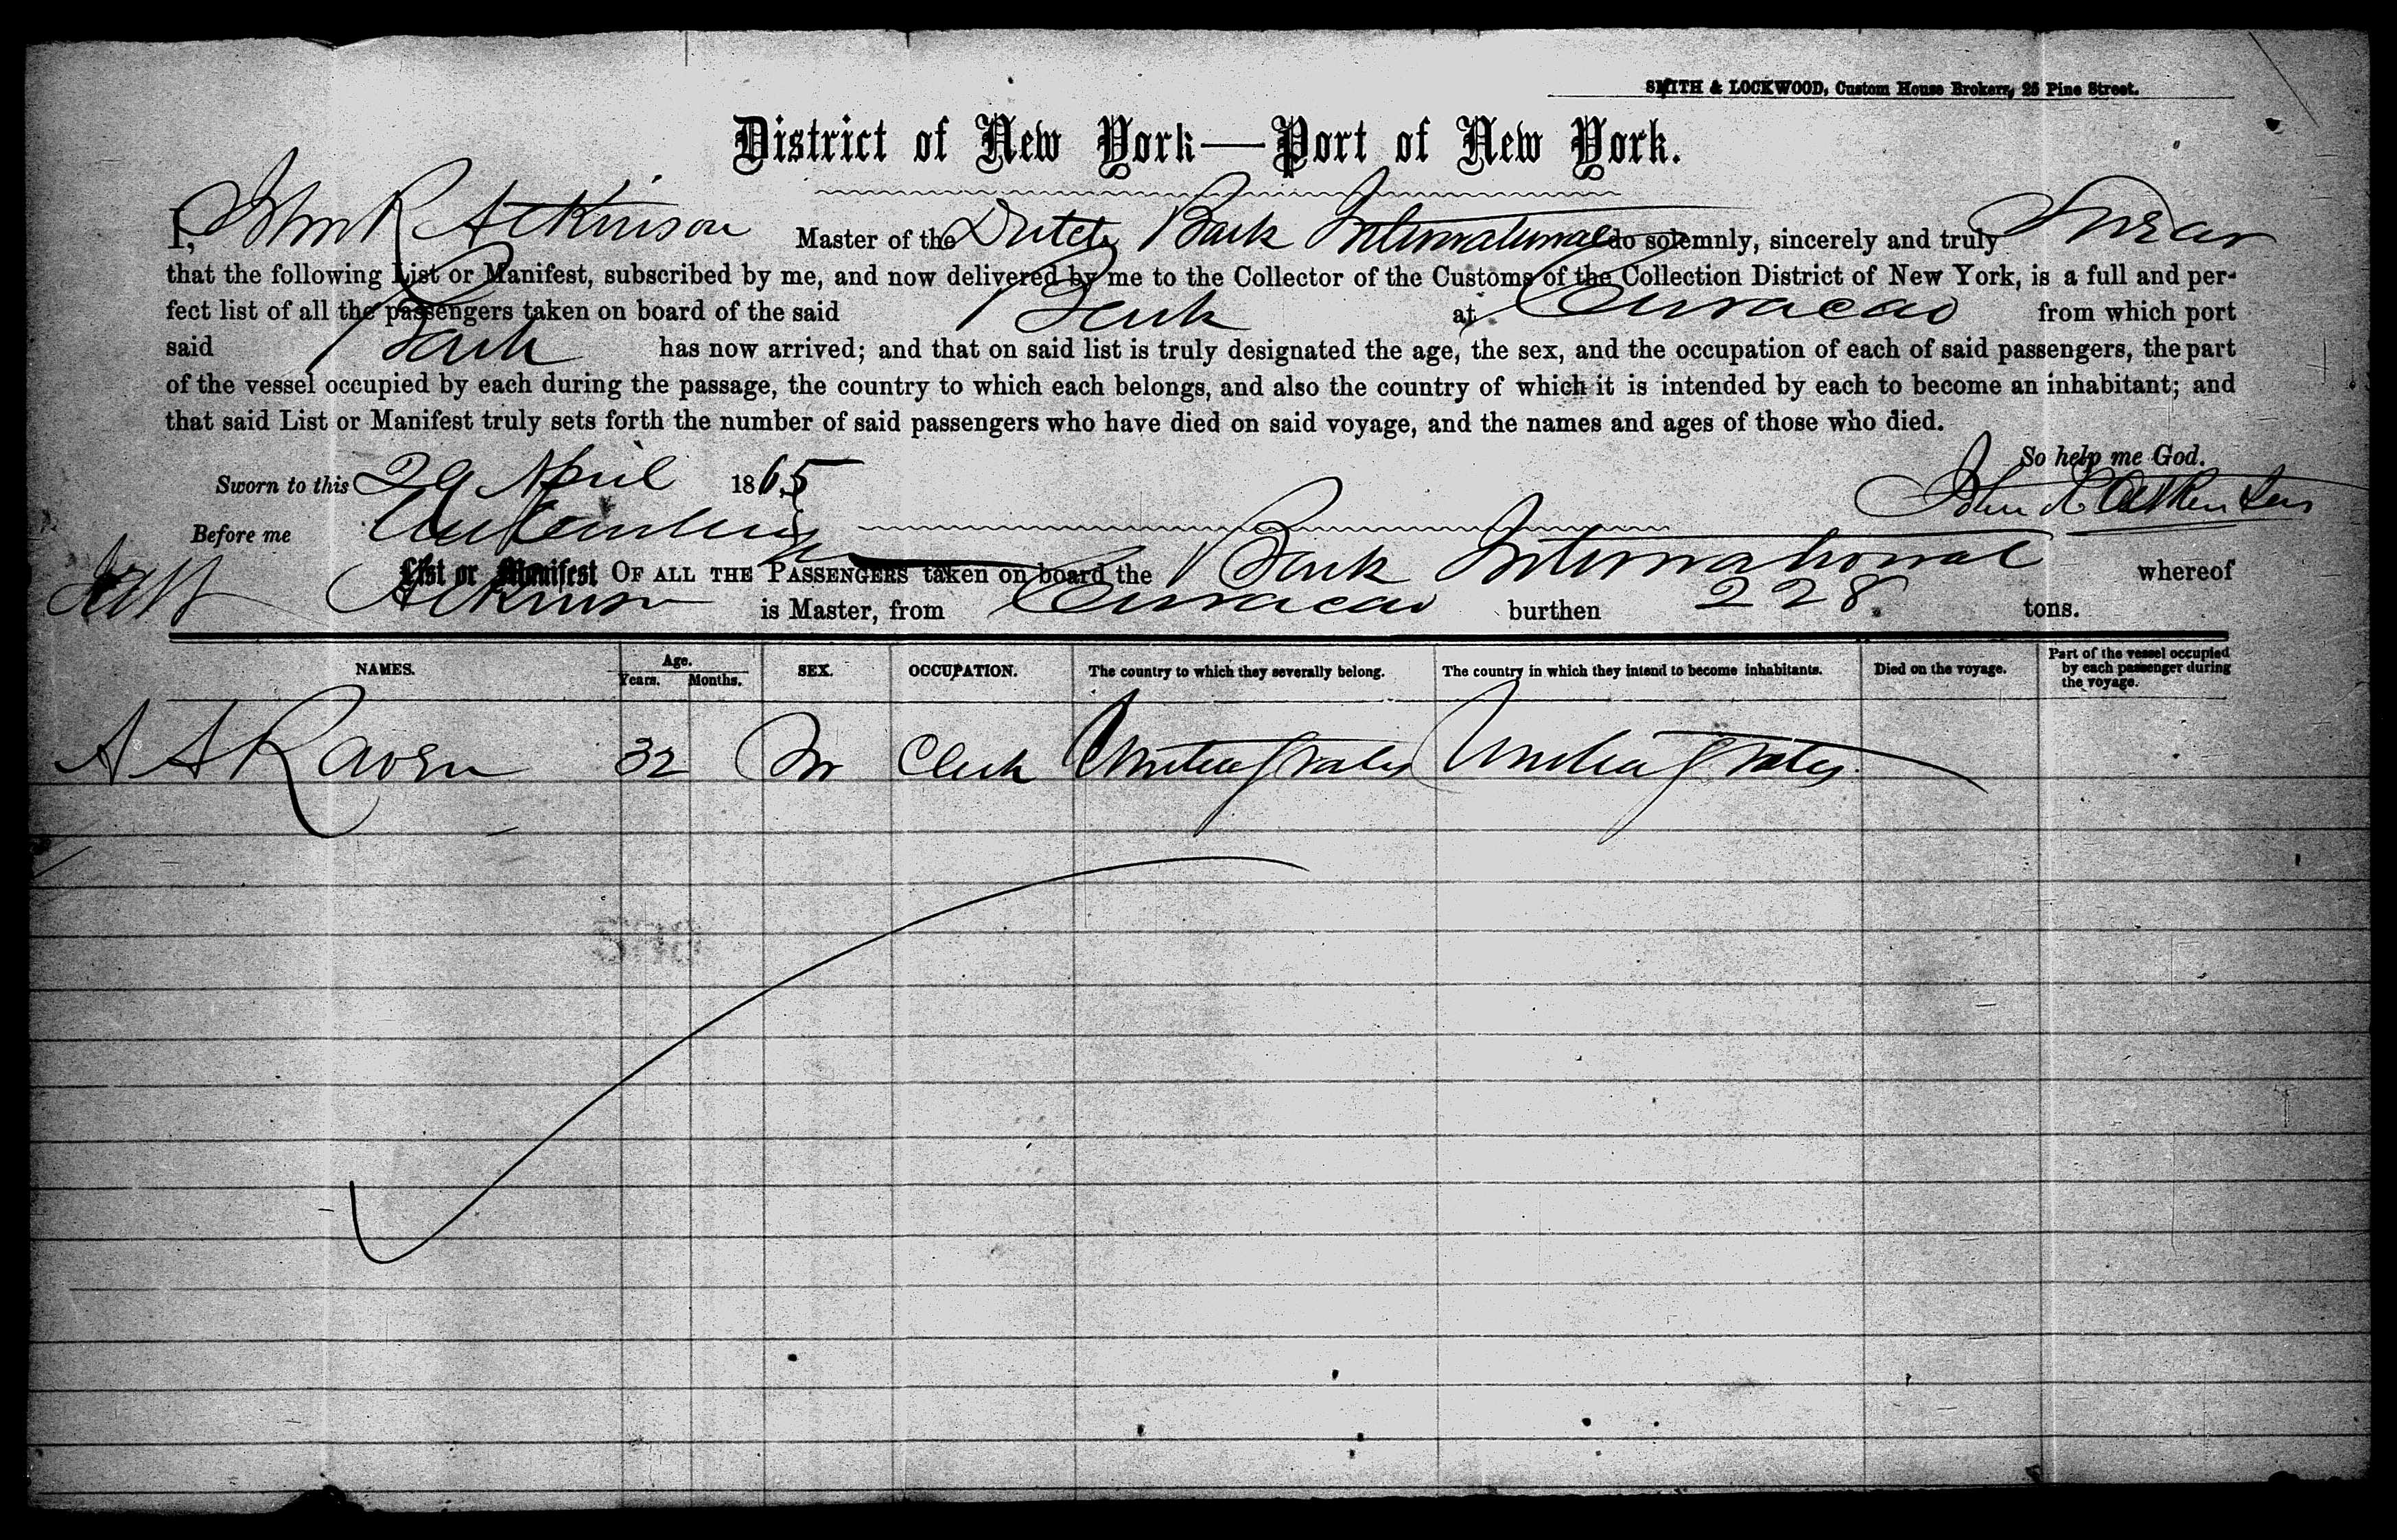 SMITH & LOCKWOOD, Custom House Brokers, 25 Pine Street.
District of New York—Port of New York.
I, John R Atkinson Master of the Dutch Bark International do solemnly, sincerely and truly Swear
that the following List or Manifest, subscribed by me, and now delivered by me to the Collector of the Customs of the Collection District of New York, is a full and per-
fect list of all the passengers taken on board of the said Bark at Curacao from which port
said Bark has now arrived; and that on said list is truly designated the age, the sex, and the occupation of each of said passengers, the part
of the vessel occupied by each during the passage, the country to which each belongs, and also the country of which it is intended by each to become an inhabitant; and
that said List or Manifest truly sets forth the number of said passengers who have died on said voyage, and the names and ages of those who died.
So help me God.
Sworn to this 29 April 1865 John R Atkinson
Before me
List or Manifest OF ALL THE PASSENGERS taken on board the Bark International whereof
Atkinson is Master, from Curacao burthen 228 tons.
NAMES. Age. Years. Months. SEX. OCCUPATION. The country to which they severally belong. The country in which they intend to become inhabitants. Died on the voyage. Part of the vessel occupied by each passenger during the voyage.
A A Raven 32 M Clerk United States United States